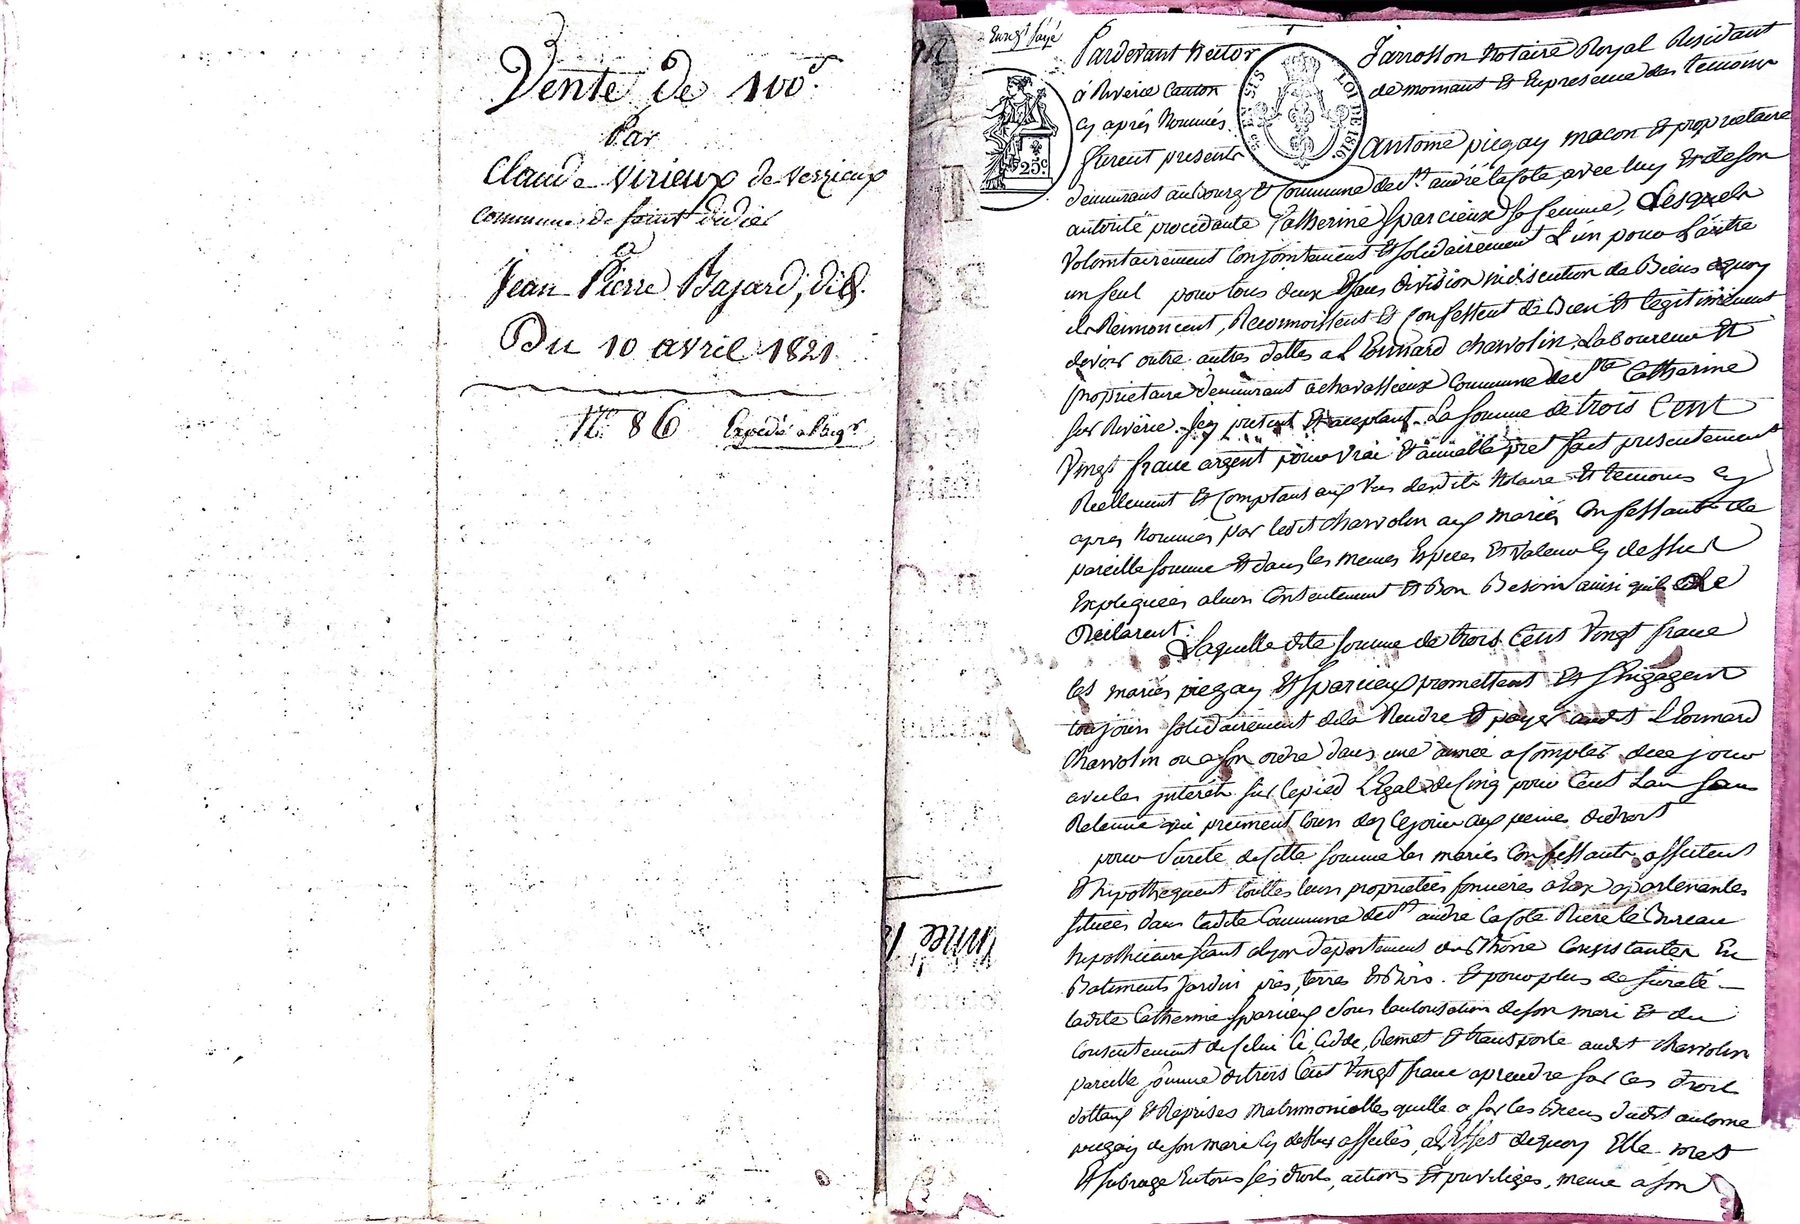 Vente de 100f.
Par
Claude Virieux de Verrieux
commune de Saint didier
a
Jean Pierre Bajard, dit
Du 10 avril 1821
N° 86 Expédié
Enregt payé
Pardevant Hector Jarrosson Notaire Royal Residant
à Riverie Canton de mornant Et En presence des temoins
cy après Nommés
furent presents antoine piegay macon Et proprietaire
demeurant au bourg Et Commune de St andré la Cote, avec luy Et de son
autorité procédante Catherine Sparcieux sa femme, Lesquels
Volontairement Conjointement Et solidairement L'un pour L'autre
un seul pour tous deux Et sans division ni discution de Biens a quoy
ils Rennoncent, Reconnoissent Et Confessent de bien Et legitimement
devoir outre autres dettes a Léonnard charvolin, Laboureur Et
proprietaire demeurant a chavassieux Commune de Ste Catherine
sur Riverie icy present Et acceptant La somme de trois Cent
Vingt franc argent pour Vrai Et amiable pret fait presentement
Reellement Et Comptant aux Vus desdits Notaire Et temoins cy
apres Nommés par ledit charvolin aux mariés Confessants de
pareille somme Et dans les memes Especes Et Valeur cy dessus
Expliquées a leur Contentement Et Bon Besoin ainsi qu'ils Le
Declarent.
Laquelle dite somme de trois Cent Vingt franc
les mariés piegay Et Sparcieux promettent Et s'Engagent
toujours solidairement de la Rendre Et payer audit Léonnard
charvolin ou a son ordre dans une année a Compter de ce jour
avec les interets sur le pied Légal de Cinq pour Cent L'an sans
Retenue qui prennent Cours des ce jour aux peines de droit
pour Sureté de Cette somme les mariés Confessants affectent
Et hipothequent touttes leurs proprietées foncières a Eux apartenantes
situées dans ladite Commune de St andré la Cote Riere le Bureau
hipothécaire séant a lyon departement du Rhône Consistantes En
Batiments jardin prés, terres Et Bois. Et pour plus de sureté
ladite Catherine Sparcieux sous l'autorisation de son mari Et du
Consentement de Celui ci, Cede, Remet Et transporte audit charvolin
pareille somme de trois Cent Vingt franc a prendre sur ces droit
dottaux Et Reprises matrimonialles quelle a sur les Biens dudit antoine
piegay de son mari cy dessus affectés, a L'Effet de quoy Elle met
Et subroge En tous ses droits, actions Et privileges, meme a son
25c.
LOI DE 1816.
EN SUS